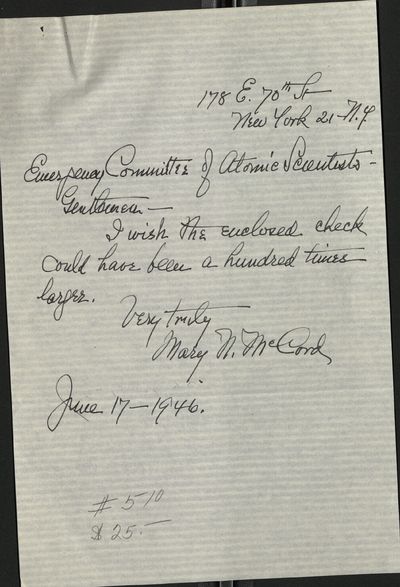 178 E. 70th St
New York 21-N.Y.
Emergency Committee of Atomic Scientists-
Gentlemen-
I wish the enclosed check
could have been a hundred times
larger.
Very truly
Mary N. McCord
June 17-1946.
# 510
$ 25.-